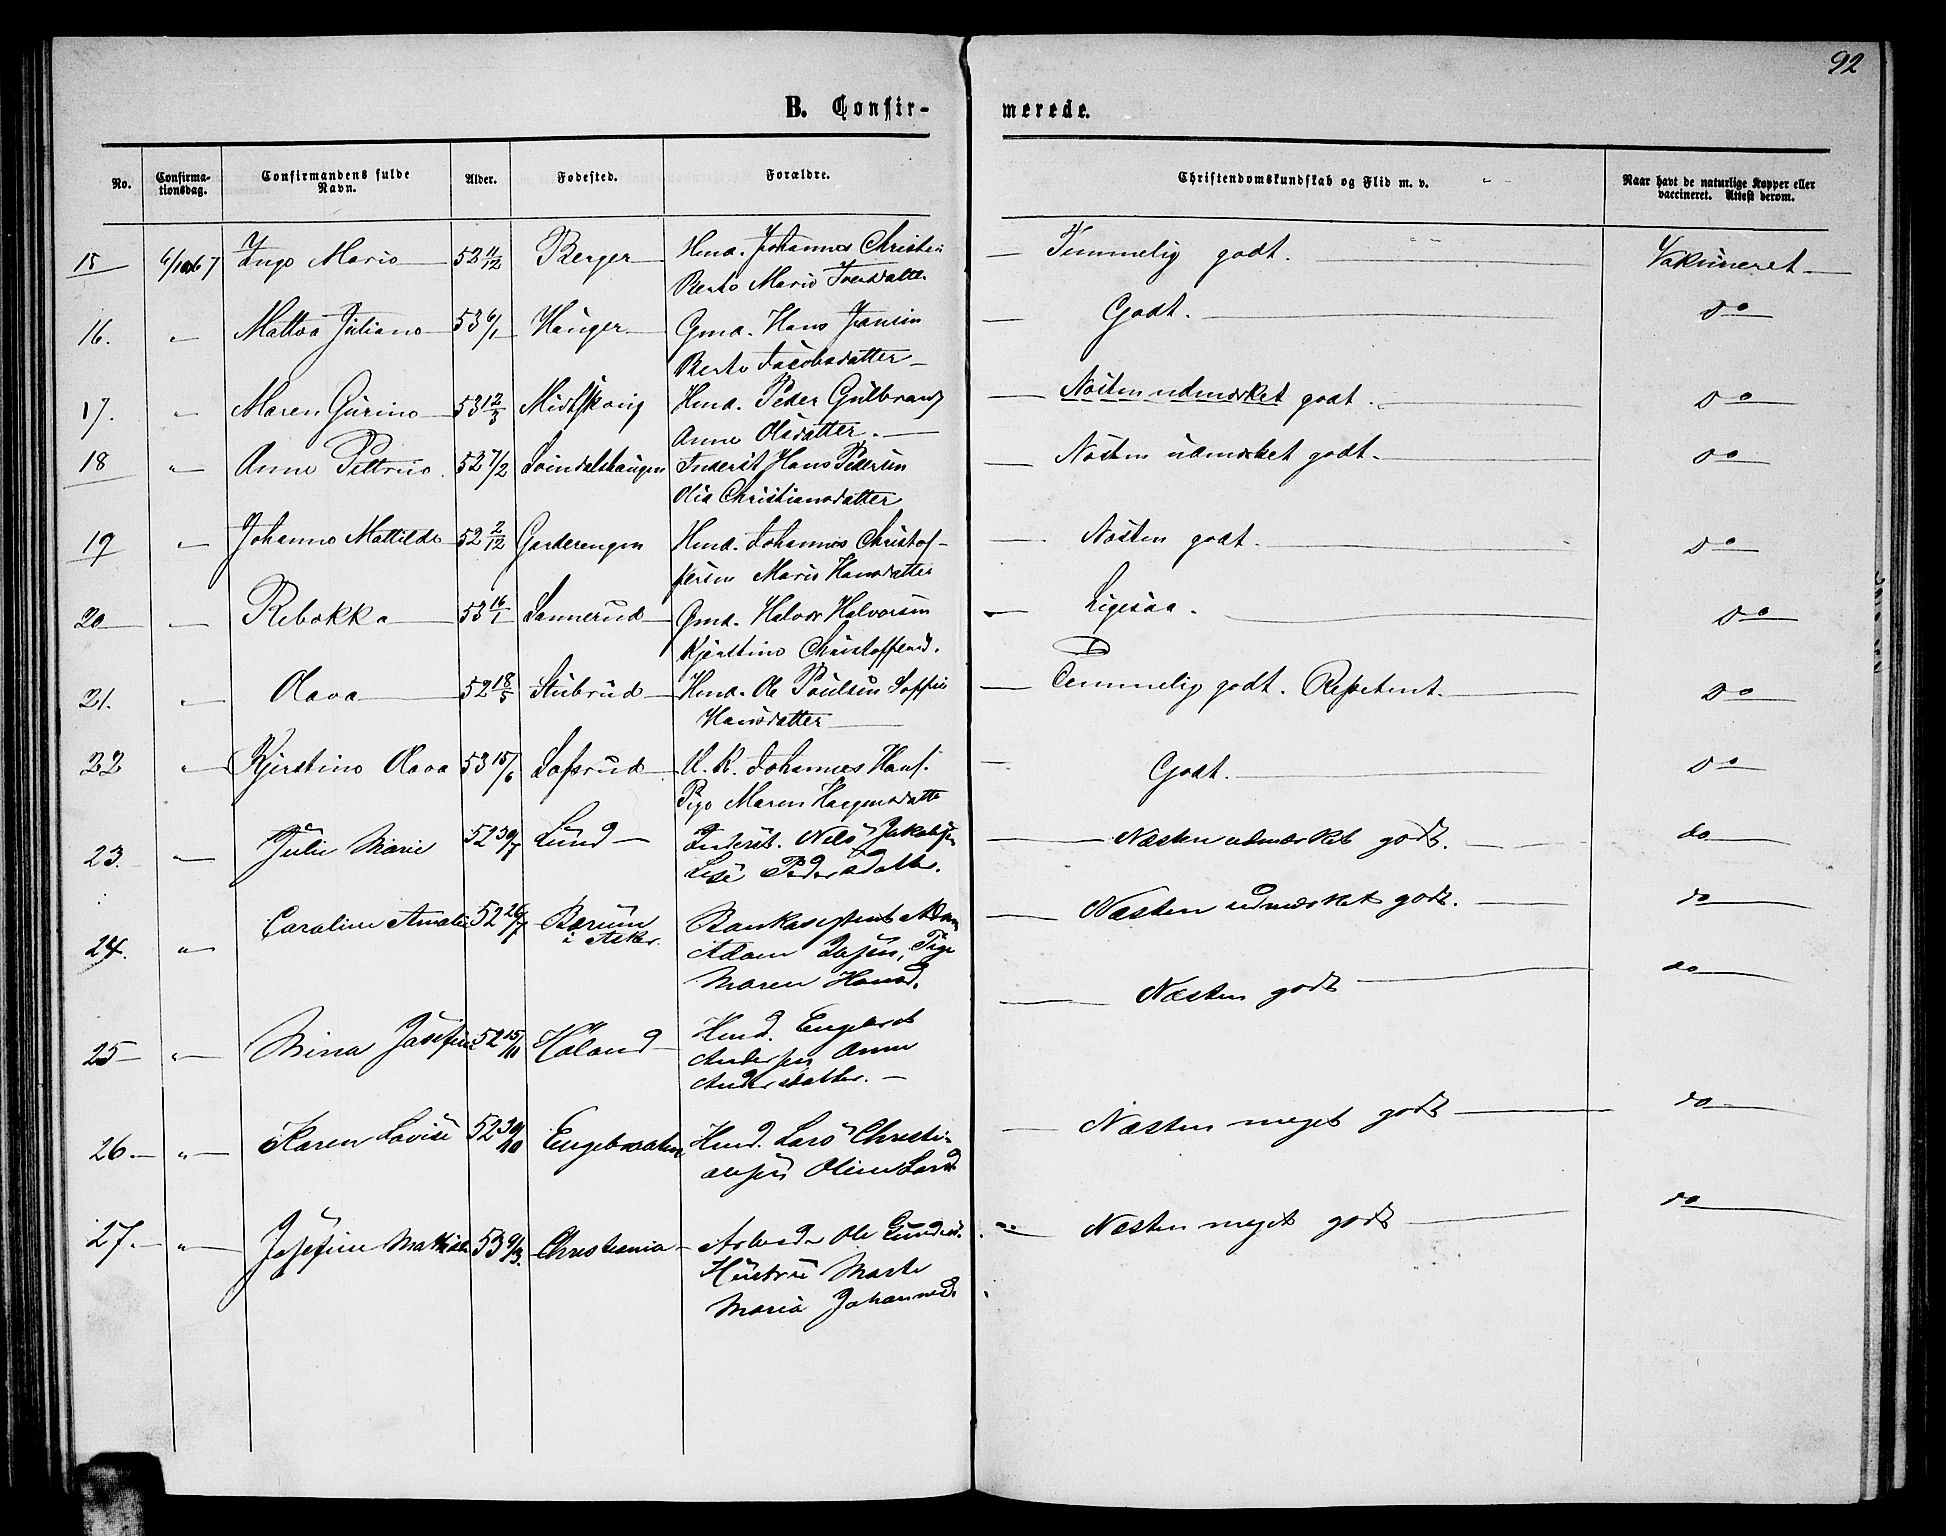 92
B. Confir-
merede.
No. Confirma-tionsdag. Confirmandens fulde Navn. Alder. Fodested. Forældre. Christendomskundskab og Flid m. v. Naar havt de naturlige Kopper eller vaccineret. Attest derom.
15 6/10 67 Inge Marie 52 11/12 Berger Hmd. Johannes Christen Temmelig godt. Vakuneret
Berte Marie Iversdatter
16. " Mattea Juliane 53 6/1 Hauger Gmd. Hans Jensen Godt. do
Berte Jacobsdatter
17. " Maren Gurine 53 12/3 Midtskoug Hmd. Peder Gulbrands Næsten udmærket godt. do
Anne Olsdatter.
18 " Anne Pettrine 52 7/2 Svindalshaugen Inderst Hans Pedersen Næsten udmærket godt. do
Olia Christiansdatter
19 " Johanne Mattilde 52 2/12 Garderengen Hmd. Johannes Christof- Næsten godt. do
fersen Marie Hansdatter
20 " Rebekka 53 16/1 Sannerud Gmd. Halvor Halvorsen Ligesaa. do
Kjerstine Christoffersd.
21. " Olava 52 18/5 Stubrud Hmd. Ole Poulsen Soffie Temmelig godt. Repetent. do
Hansdatter
22 " Kjerstine Olava 53 15/6 Lofsrud U. K. Johannes Hans. Godt. do
Pige Maren Haagensdatter
23. " Julie Marie 52 30/7 Lund Inderst. Nels Jakobsen Næsten udmærket godt. do
Lise Pedersdatter.
24. " Caroline Amalie 52 26/7 Berum i Asker. Næsten udmærket godt. do
Adam Jepsen, Pige
Maren Hansd.
25 " Mina Josefine 52 15/10 Høland Hmd. Engebret Næsten godt do
Andersen Anne
Andersdatter.
26. " Karen Lovise 52 30/10 Engebraaten Hmd. Lars Christi- Næsten meget godt do
ansen Oline Larsd
27. " Josefine Mathilde 53 9/3. Christiania Arbeider Ole Gunders. Næsten meget godt do
Hustru Marte
Maria Johannesd